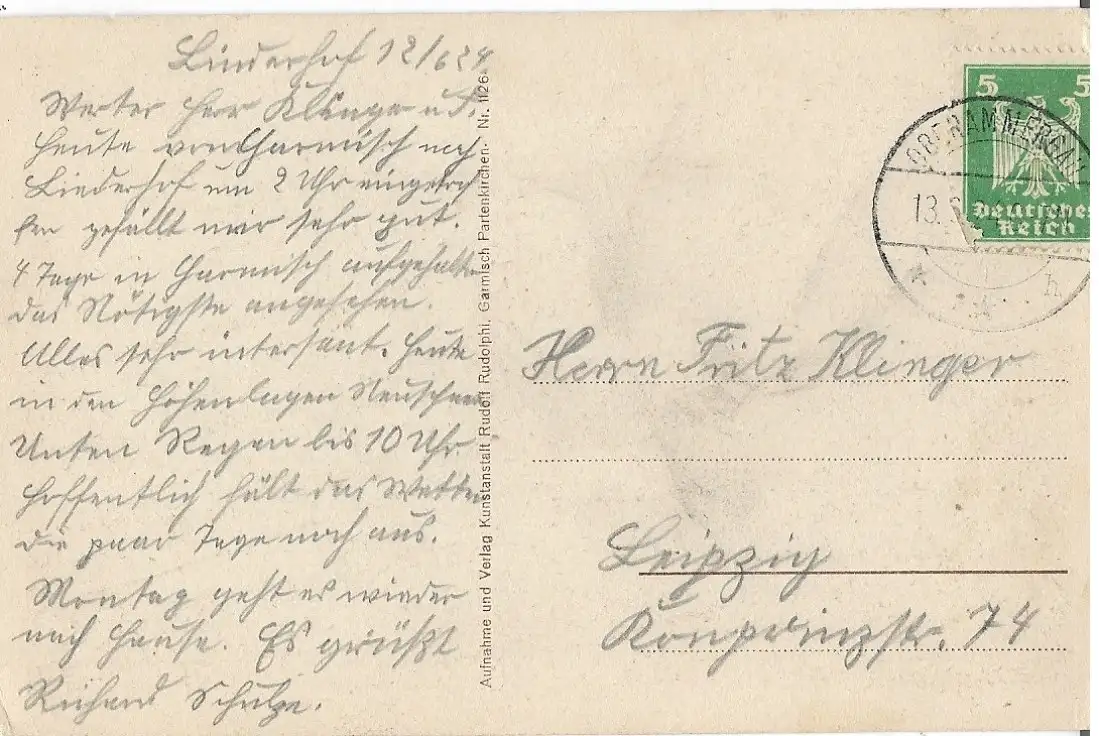 Linderhof 12/6 24
Werter Herr Klinger u. F.
Heute von Garmisch nach
Liederhof um 2 Uhr eingetrof
fen gefällt mir sehr gut.
4 Tage in Garmisch aufgehalten
das Nötigste angesehen.
Alles sehr intersant. Heute
in den Höhenlagen Neuschnee
Unten Regen bis 10 Uhr.
Hoffentlich hält das Wetter
die paar Tage noch aus.
Montag geht es wieder
nach Hause. Es grüßt
Richard Schulze.
Aufnahme und Verlag Kunstanstalt Rudolf Rudolphi, Garmisch Partenkirchen- Nr. 1126
5 5
Deutsches
Reich
OBERAMMERGAU
13.6.
Herrn Fritz Klinger
Leipzig
Konprinzstr. 74